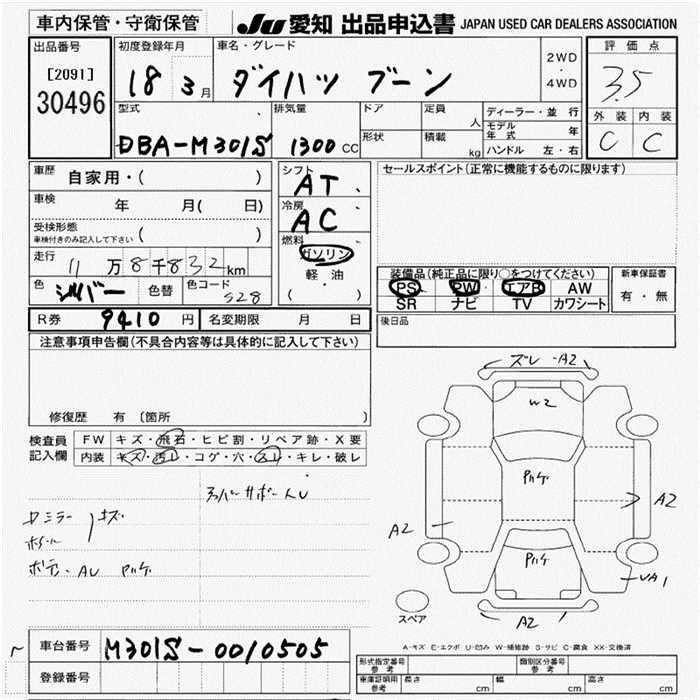 車内保管・守衛保管
JU 愛知 出品申込書 JAPAN USED CAR DEALERS ASSOCIATION
出品番号 初度登録年月 車名・グレード 2WD ・ 4WD 評価点
[2091]
30496
18 3月 ダイハツ ブーン 3.5
型式 排気量 ドア 定員 人 ディーラー・並行 外装 内装
DBA-M301S 1300cc 形状 積載 kg モデル年式 年 C C
ハンドル 左・右
車歴 自家用・( ) シフト AT セールスポイント(正常に機能するものに限ります)
車検 年 月( 日) 冷房 AC
受検形態
車検付きのみ記入して下さい 燃料 ガソリン
走行 11万8千832km 軽油 装備品(純正品に限り○をつけてください) 新車保証書
色 シルバー 色替 色コード S28 ( ・ ) PS PW エアB AW 有・無
SR ナビ TV カワシート
R券 9410円 名変期限 月 日 後日品
注意事項申告欄(不具合内容等は具体的に記入して下さい)
修復歴 有 〔箇所
ズレ-A2
W2
検査員記入欄 FW キズ・飛石・ヒビ割・リペア跡・X要
内装 キズ・汚レ・コゲ・穴・スレ・キレ・破レ
A2
A2
ミラー キズ
AU
UA1
スペア
A2
A-キズ E-エクボ U-凹み W-補修跡 S-サビ C-腐食 XX-交換済
車台番号 M301S-0010505
登録番号
形式指定番号 参考 類別区分番号 参考
車庫証明用 参考 長さ cm 幅 cm 高さ cm